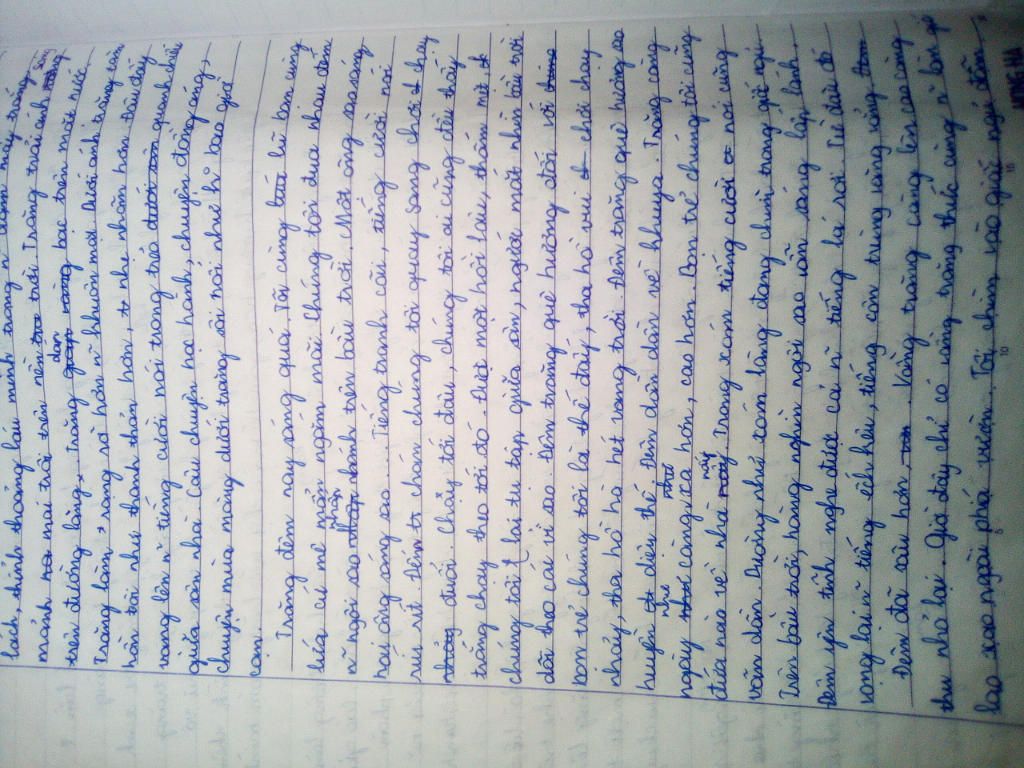 lách, thỉnh thoảng lẩu mình trong n đám mây trắng
mảnh mai trôi trên nền trời. Trăng trải ánh sáng
trên đường làng, trăng dan bạc trên mặt nước.
Trăng làm sáng rõ hơn n khuôn mặt. Dưới ánh trăng, tâm
hồn tôi như thanh thản hơn, nhẹ nhõm hơn. Đâu đây
vang lên n tiếng cười nói trong trẻo quanh chiếc
giữa sân nhà. Câu chuyện học hành, chuyện đồng áng,
chuyện mùa màng dưới trăng rôi nổi như hi bao giờ
cạn.
Trăng đêm nay sáng quá. Tôi cùng lũ bạn cùng
lứa cứ mê mẩn ngắm mãi. Chúng tôi đua nhau đếm
n ngôi sao nhấp nhánh trên bầu trời. Một ông sao sáng
hai ông sáng sao... Tiếng tranh cãi, tiếng cười nói
ríu rít. Đếm chán chúng tôi quay sang chơi chạy
đuổi. Chạy tới đâu, chúng tôi ai cũng đều thấy
trăng chạy theo tới đó. Đuổi một hồi lâu, thấm mệt,
chúng tôi lại tụ tập giữa sân, ngước mắt nhìn bầu trời
dõi theo cái vì sao. Đêm trăng quê hương đối với
bọn trẻ chúng tôi là thế đấy, tha hồ vui chơi chạy
nhảy, tha hồ hò hét vang trời. Đêm trăng quê hương sao
huyền diệu thế. Đêm dần dần về khuya. Trăng càng
ngày như càng xa hơn, cao hơn. Bọn trẻ chúng tôi cùng
đứa nào về nhà nấy. Trong xóm tiếng cười nói cũng
vãn dần. Dường như xóm làng đang chìm trong giấc ngủ.
Trên bầu trời, hàng nghìn ngôi sao vẫn sáng lấp lánh.
Đêm yên tĩnh nghe được cả n tiếng lá rơi. Từ đâu đó
vọng lại n tiếng ếch kêu, tiếng côn trùng vang vảng.
Đêm đã sâu hơn, vầng trăng càng lên cao càng
thu nhỏ lại. Giờ đây chỉ có ông trăng thức cùng n làn gió
lao xao ngoài phía vườn. Tôi chìm vào giấc ngủ đêm